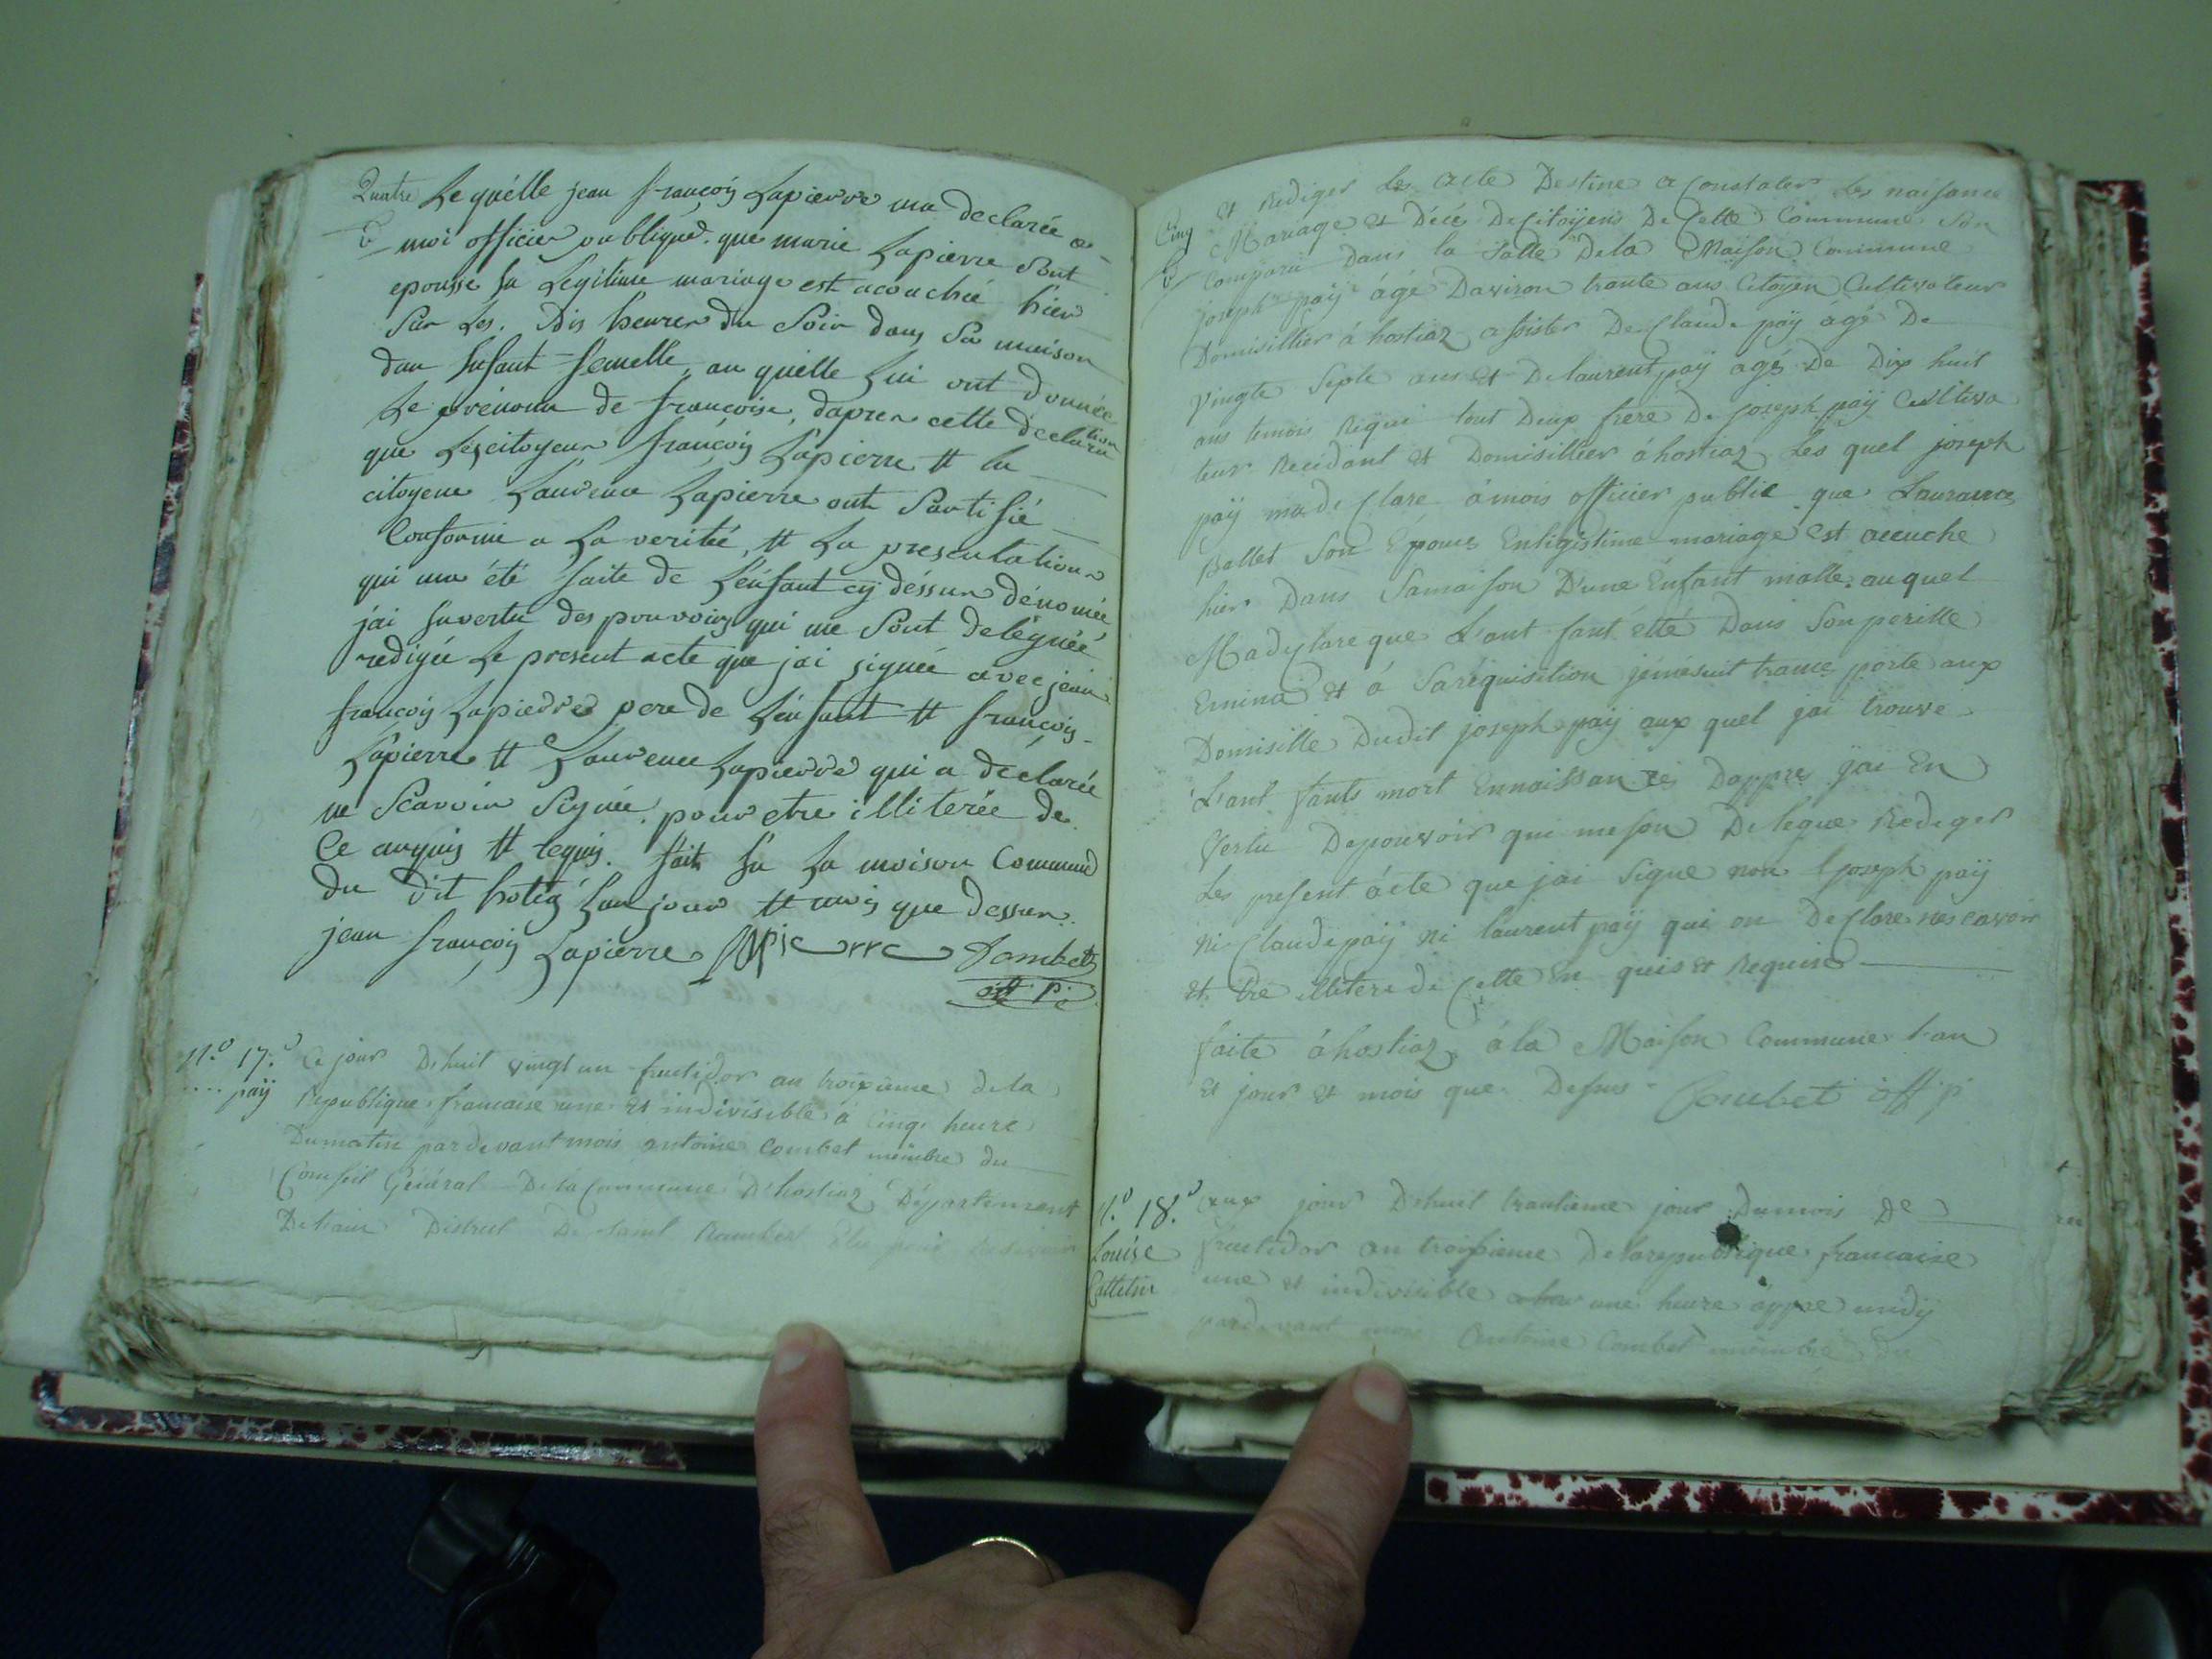 Quatre Le quélle jean françois Lapierre ma declarée a
moi officier publiqué. que marie Lapierre Sont
epousse Su Legitime mariage est acouchée hier
Sur Les. Dis heurer du Soir dans Sa maison
dun Enfant femelle, au quélle Lui ont donnée
Le prénom de francoise, daprer cette declaration
que Les citoyeur françois Lapierre et la
citoyene Laurence Lapierre ont Sertifié
Conforme a La verité, et La presentation
qui ma été faite de Lénfant cy dessur dénomée
j'ai Envertu des pouvoirs qui me Sont deleguée
redigée Le present acte que jai signée avec jean
françois Lapierre pere de Lenfant et françois
Lapierre et Laurence Lapierre qui a declarée
ne Scavoir Signée, pour etre illiterée de
Ce anquis et requis. fait En La moison Commune
du dit hotiaz Lan jour et mois que dessur.
jean françois Lapierre Lapierre Combet
off. P.
N.º 17.º Ce jour Dhuit vingt un fructidor an troixieme de la
pay Republique francaise une et indivisible à cinq heure
Dumatin pardevant mois antoine Combet membre du
Conseil Général De la Commune D'hostiaz Département
De Lain District De Saint Rambert Elu pour Recevoir
Cinq et Rediger Les acte Destine a Constater Les naissance
Mariage et Décé De Citoÿens De Cette Commune Son
Comparu dans la Salle De la Maison Commune
joseph paÿ âgé Daviron trante ans Citoyen Cultivateur
Domisillier á hostiaz assister De Claude paÿ âgé De
vingte Septe ans et De laurent paÿ agé De Dix huit
ans temois Réqui tout Deux frere De joseph paÿ Cultiva
teur Recidant et Domisillier áhostiaz Les quel joseph
paÿ ma de Clare ámois officier public que Laurance
Ballet Son Epouse Enligistime mariage est accuche
hier Dans Samaison D'une Enfant malle auquel
Madyclare que L'ant fant été Dans Son perille
Eminâ et á Saréquisition jemesuit trance porte aux
Domisille Dudit joseph paÿ aux quel jai trouve
L'ant fants mort Ennaissances Dappre jai En
Vertu Depouvoir qui meson Delegue Rediger
Les present ácte que jai Signe non joseph paÿ
ni Claude paÿ ni laurent paÿ qui on De Clare nescavoir
et tre illitere de Cette En quis et Requise
faite áhostiaz á la Maison Commune L'an
et jour et mois que Desus Combet off. p.
N.º 18.º aux jour Dhuit trantieme jour Dumois De
Louise fructidor an troisieme De la republique francaise
Calletin une et indivisible une heure áppre midÿ
pardevant mois Antoine Combet membre du